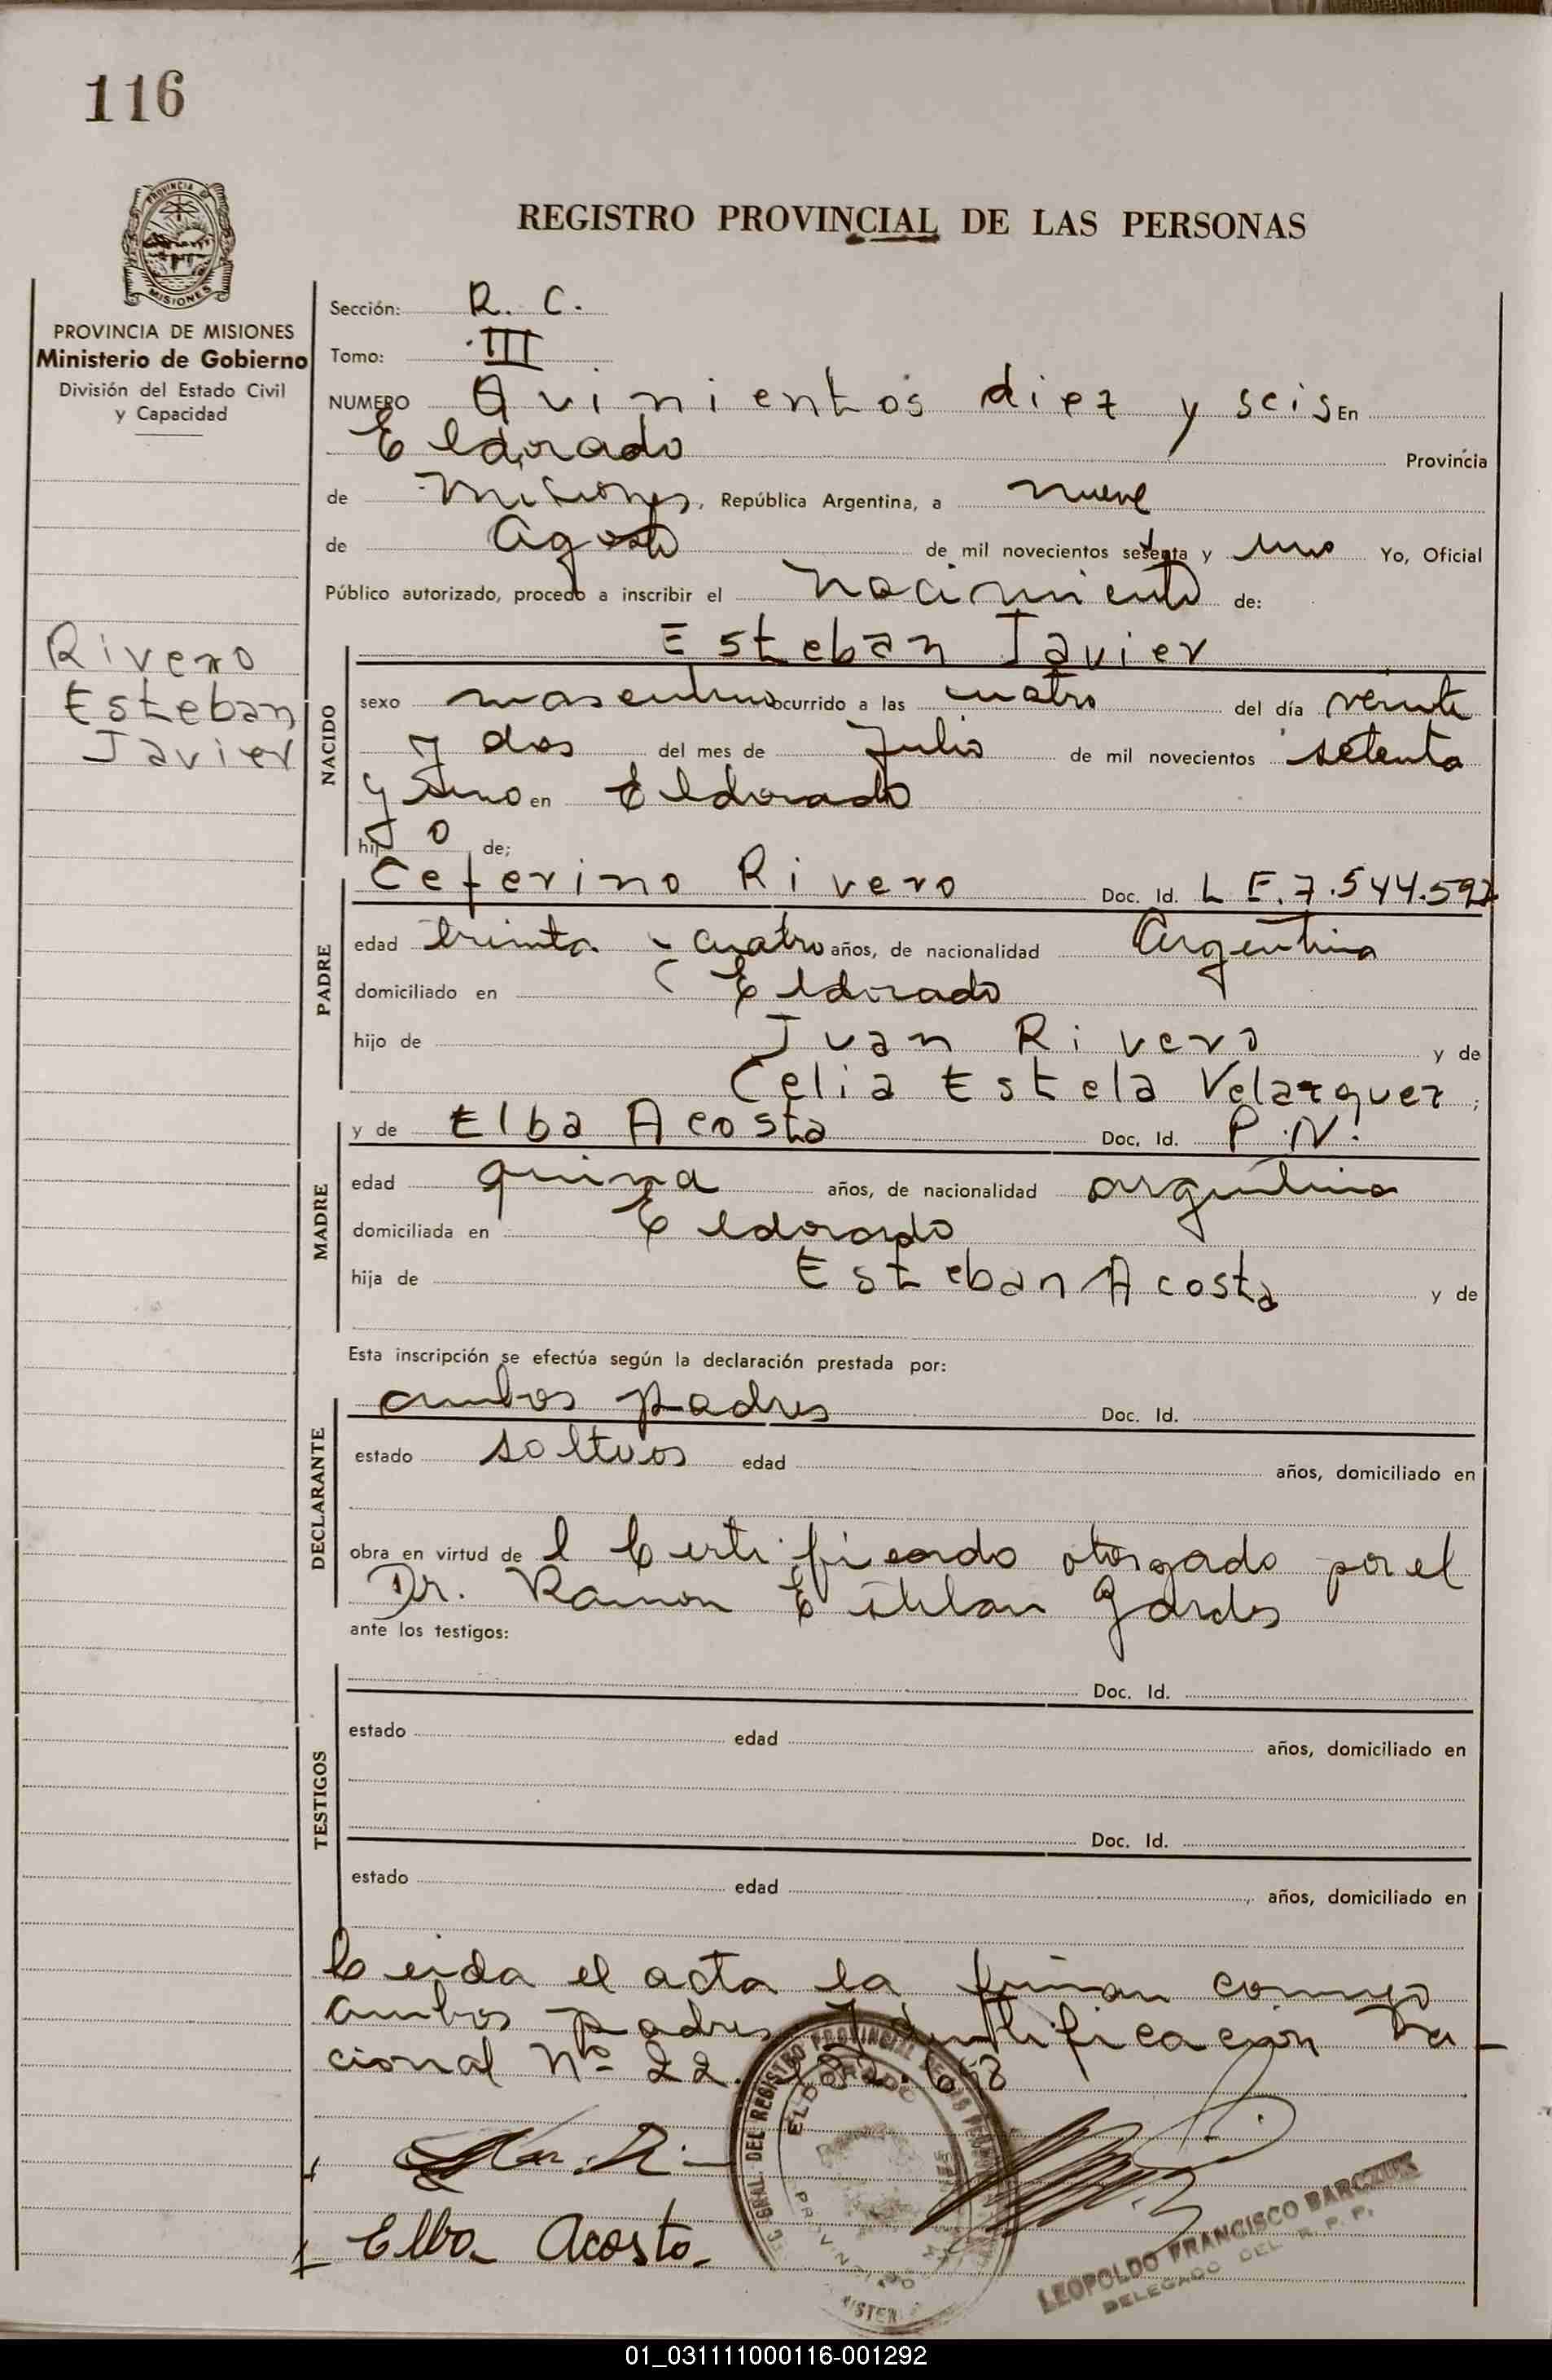 116
REGISTRO PROVINCIAL DE LAS PERSONAS
PROVINCIA DE MISIONES
MISIONES
PROVINCIA DE MISIONES
Ministerio de Gobierno
División del Estado Civil
y Capacidad
Rivero
Esteban
Javier
Sección: R. C.
Tomo: III
NUMERO Quinientos diez y seis En
Eldorado Provincia
de Misiones, República Argentina, a nueve
de Agosto de mil novecientos setenta y uno Yo, Oficial
Público autorizado, procedo a inscribir el nacimiento de:
Esteban Javier
NACIDO
sexo masculino ocurrido a las cuatro del día veinte
y dos del mes de Julio de mil novecientos setenta
y uno en Eldorado
hijo de;
Ceferino Rivero Doc. Id. L E. 7.544.592
PADRE
edad treinta y cuatro años, de nacionalidad Argentina
domiciliado en Eldorado
hijo de Juan Rivero y de
Celia Estela Velazquez ;
y de Elba Acosta Doc. Id. P. N.
MADRE
edad años, de nacionalidad argentina
domiciliada en Eldorado
hija de Esteban Acosta y de
Esta inscripción se efectúa según la declaración prestada por:
ambos padres Doc. Id.
DECLARANTE
estado solteros edad años, domiciliado en
obra en virtud de l Certificado otorgado por el
Dr. Ramon Esteban
ante los testigos:
Doc. Id.
TESTIGOS
estado edad años, domiciliado en
Doc. Id.
estado edad años, domiciliado en
Leida el acta la firman conmigo
ambos padres Identificacion Na-
cional Nº 22.
Elba Acosta
ELDORADO
LEOPOLDO FRANCISCO BARCZUK
DELEGADO DEL R. P. P.
01_031111000116-001292